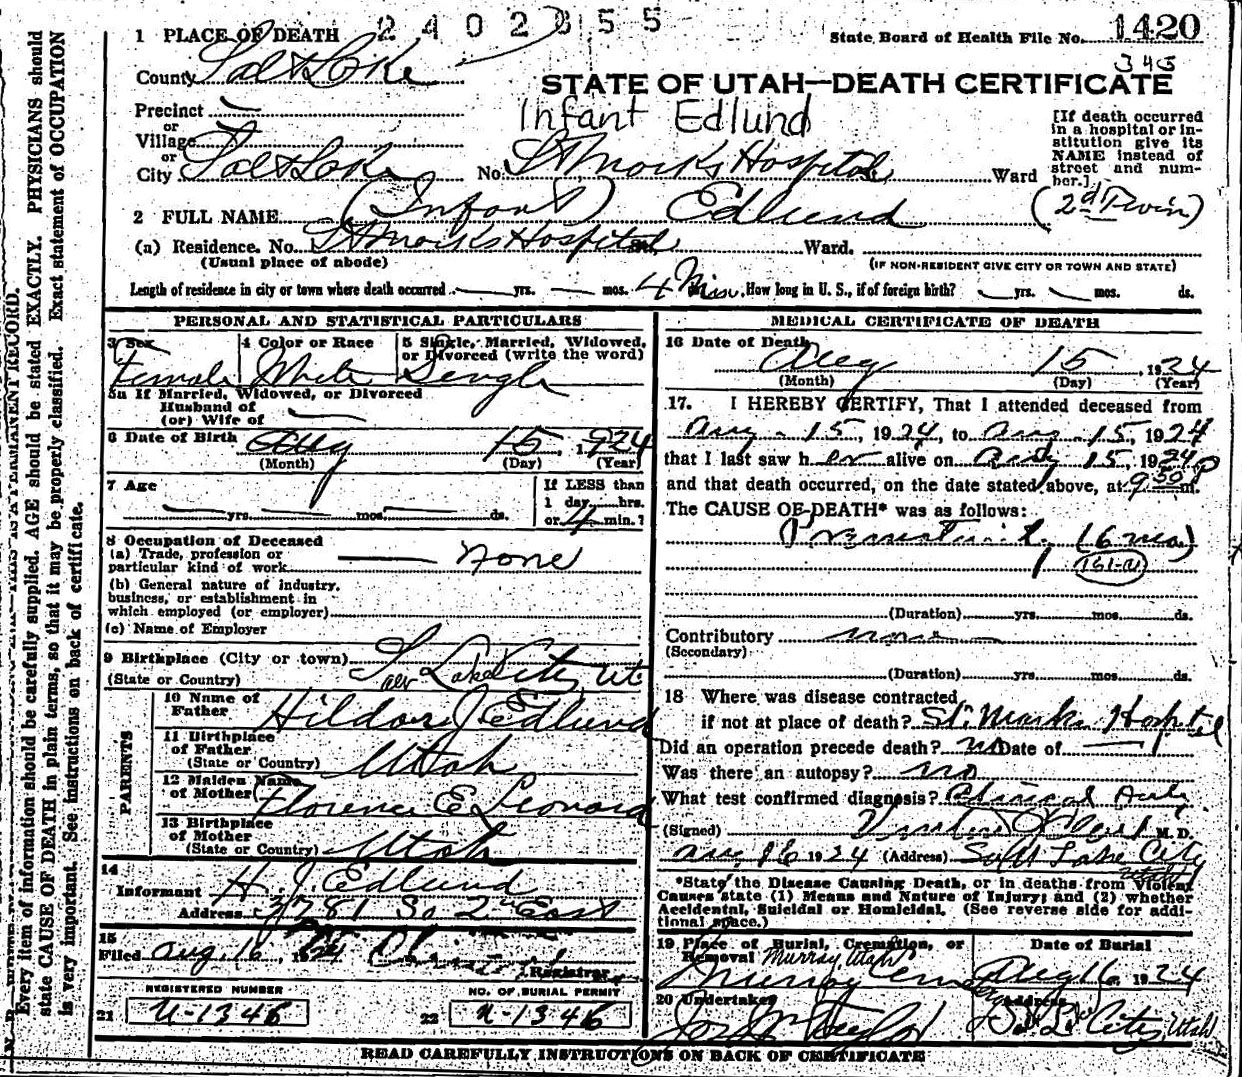 2402855
1 PLACE OF DEATH
State Board of Health File No. 1420
343
County Salt Lake
STATE OF UTAH—DEATH CERTIFICATE
Precinct
or
Village
or
City Salt Lake No. St Marks Hospital Ward
Infant Edlund
[If death occurred in a hospital or institution give its NAME instead of street and number.]
2 FULL NAME (Infant) Edlund (2nd Twin)
(a) Residence. No. St Marks Hospital St., Ward.
(Usual place of abode)
(IF NON-RESIDENT GIVE CITY OR TOWN AND STATE)
Length of residence in city or town where death occurred yrs. mos. 4 Min. How long in U. S., if of foreign birth? yrs. mos. ds.
PERSONAL AND STATISTICAL PARTICULARS
3 Sex Female
4 Color or Race White
5 Single, Married, Widowed, or Divorced (write the word) Single
5a If Married, Widowed, or Divorced
Husband of
(or) Wife of
6 Date of Birth Aug 15, 1924
(Month) (Day) (Year)
7 Age yrs. mos. ds.
If LESS than
1 day hrs.
or 4 min.?
8 Occupation of Deceased
(a) Trade, profession or
particular kind of work none
(b) General nature of industry,
business, or establishment in
which employed (or employer)
(c) Name of Employer
9 Birthplace (City or town) Salt Lake City Ut
(State or Country)
PARENTS
10 Name of Father Hildor J Edlund
11 Birthplace of Father Utah
(State or Country)
12 Maiden Name of Mother Florence E Leonard
13 Birthplace of Mother Utah
(State or Country)
14
Informant H. J. Edlund
Address 3781 So 2nd East
15
Filed Aug. 16, 1924
Registrar
REGISTERED NUMBER
21 U-1346
NO. OF BURIAL PERMIT
22 U-1346
MEDICAL CERTIFICATE OF DEATH
16 Date of Death
Aug 15, 1924
(Month) (Day) (Year)
17. I HEREBY CERTIFY, That I attended deceased from
Aug. 15, 1924, to Aug. 15, 1924
that I last saw h er alive on Aug 15, 1924
and that death occurred, on the date stated above, at 9:50 P m.
The CAUSE OF DEATH* was as follows:
Prematurity (6 mo)
161-a
(Duration) yrs. mos. ds.
Contributory none
(Secondary)
(Duration) yrs. mos. ds.
18 Where was disease contracted
if not at place of death? St. Marks Hospital
Did an operation precede death? no Date of
Was there an autopsy? no
What test confirmed diagnosis? Clinical only
(Signed) M. D.
Aug 16 1924 (Address) Salt Lake City Utah
*State the Disease Causing Death, or in deaths from Violent
Causes state (1) Means and Nature of Injury; and (2) whether
Accidental, Suicidal or Homicidal. (See reverse side for additional space.)
19 Place of Burial, Cremation, or Removal Murray, Utah
Murray Cem
Date of Burial
Aug 16, 1924
20 Undertaker
Address
S. L. City Utah
READ CAREFULLY INSTRUCTIONS ON BACK OF CERTIFICATE
Every item of information should be carefully supplied. AGE should be stated EXACTLY. PHYSICIANS should
state CAUSE OF DEATH in plain terms, so that it may be properly classified. Exact statement of OCCUPATION
is very important. See instructions on back of certificate.